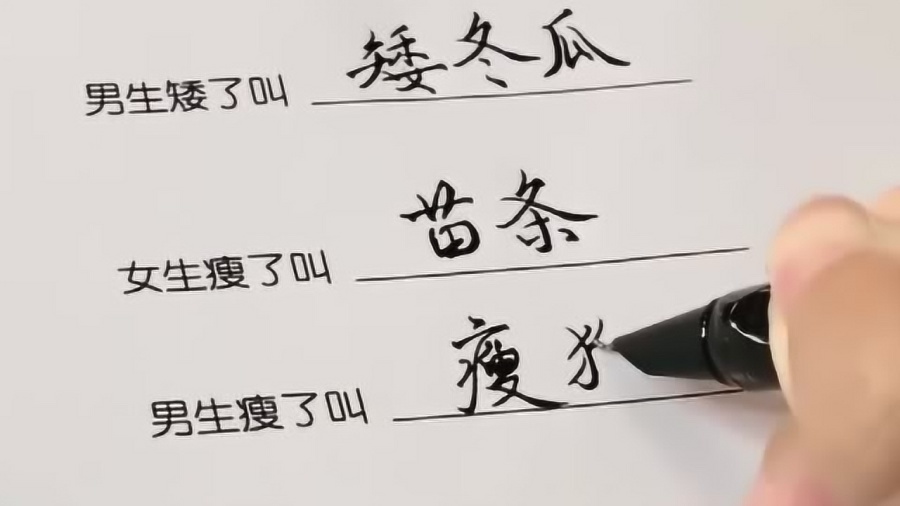 男生矮了叫 矮冬瓜
女生瘦了叫 苗条
男生瘦了叫 瘦